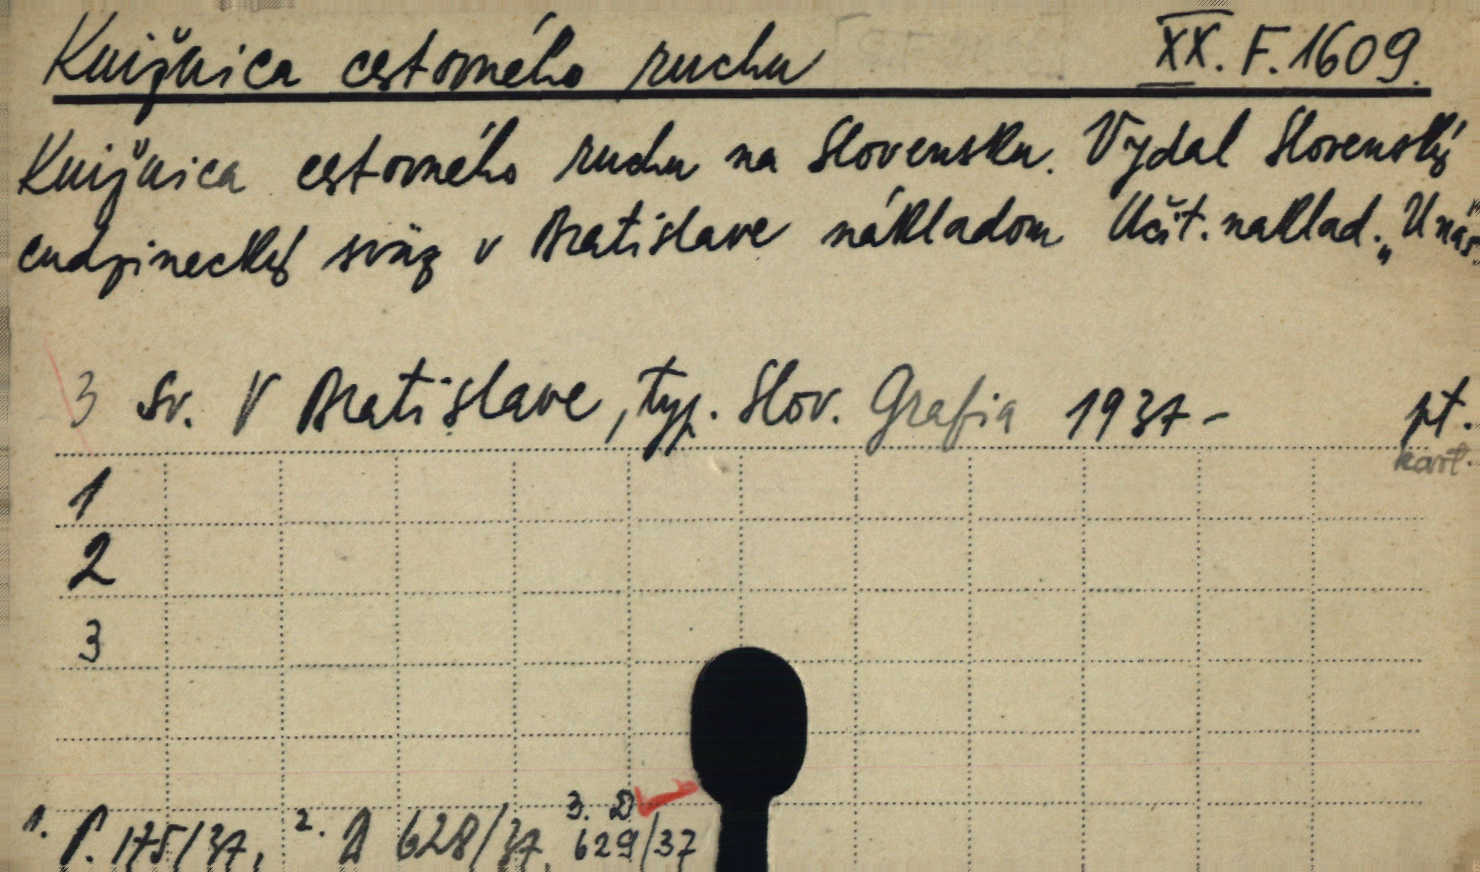 Knižnica cestovného ruchu XX. F. 1609.
Knižnica cestovného ruchu na Slovensku. Vydal Slovenský
cudzinecký sväz v Bratislave nákladom Učit. naklad. „Unás
3 sv. V Bratislave, typ. Slov. Grafia 1937- pt.
kart.
1
2
3
1. P. 175/37, 2. D 628/37, 3. D 629/37